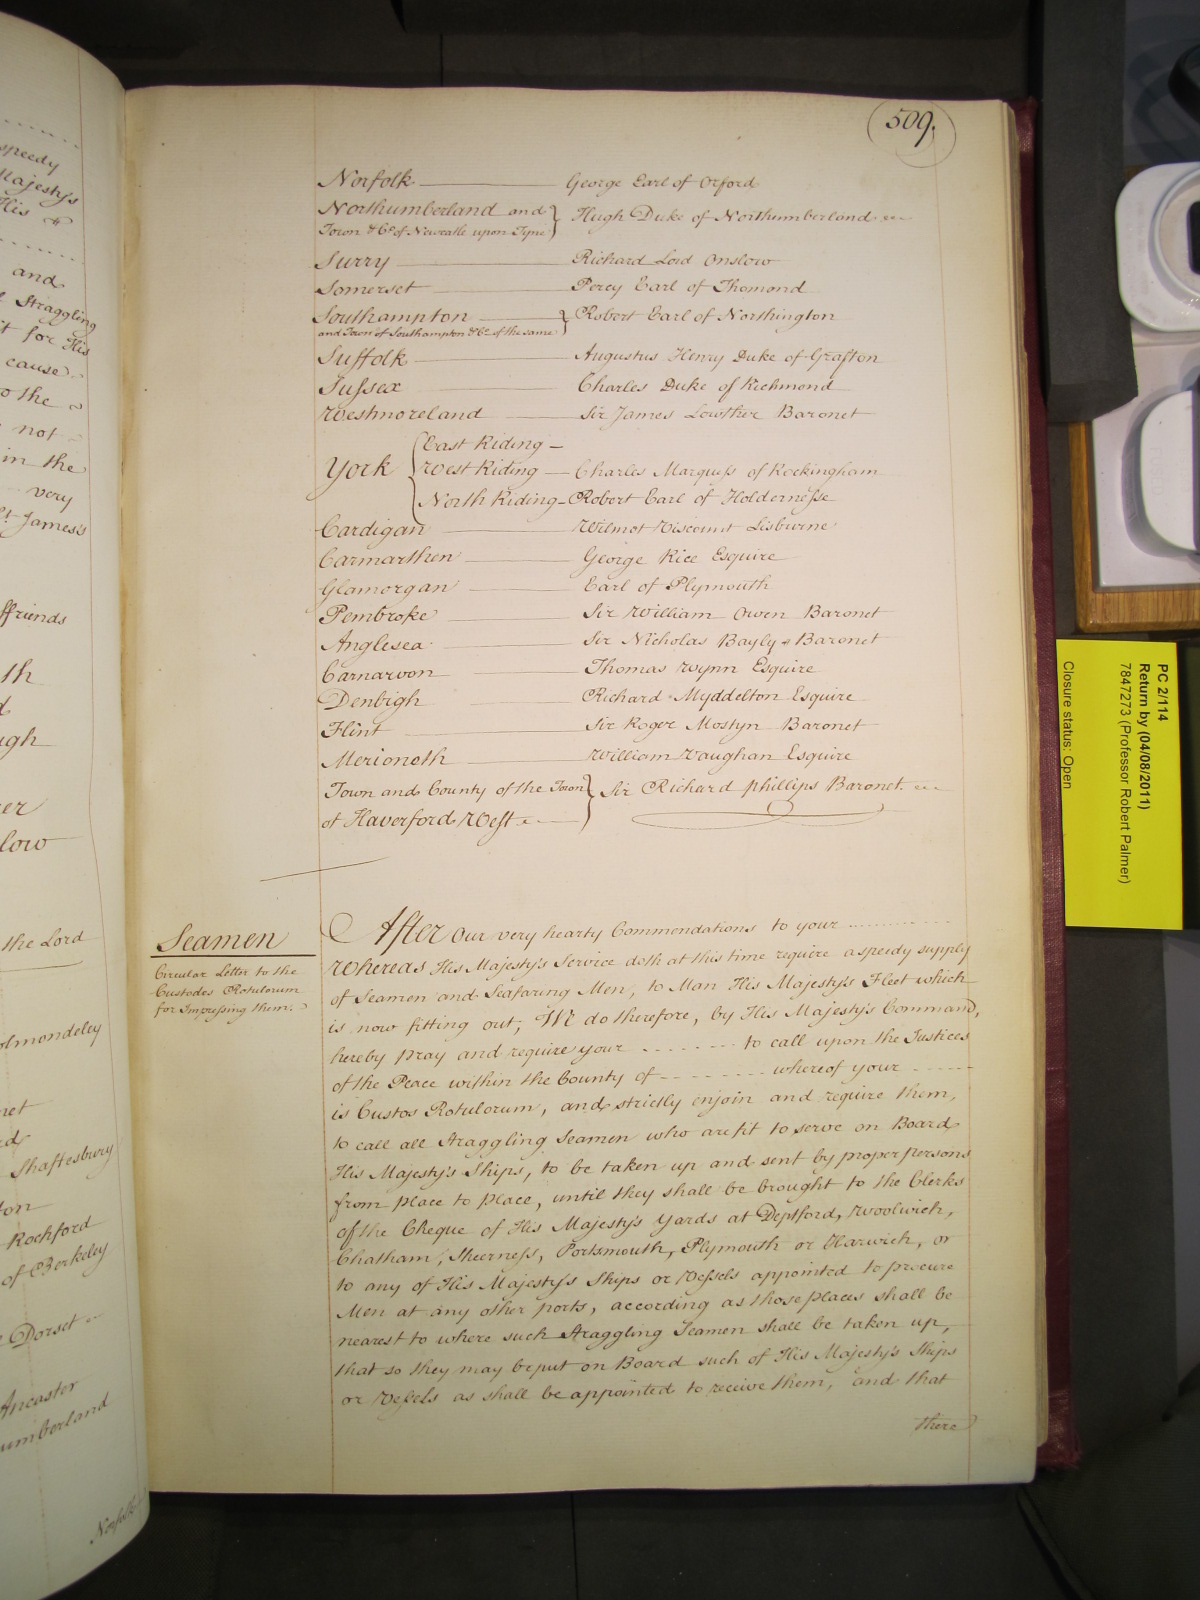 speedy
Majesty's
His &
and
Straggling
it for His
cause
to the
not
in the
very
St. James's
ffriends
the Lord
olmondeley
Shaftesbury
Rockford
of Berkeley
Dorset
Ancaster
umberland
Norfolk
509.
Norfolk George Earl of Orford
Northumberland and } Hugh Duke of Northumberland
Town & Co. of Newcastle upon Tyne
Surry Richard Lord Onslow
Somerset Percy Earl of Thomond
Southampton } Robert Earl of Northington
and Town of Southampton & Co. of the same
Suffolk Augustus Henry Duke of Grafton
Sussex Charles Duke of Richmond
Westmoreland Sir James Lowther Baronet
East Riding
York { West Riding Charles Marquiss of Rockingham
North Riding Robert Earl of Holdernesse
Cardigan Wilmot Viscount Lisburne
Carmarthen George Rice Esquire
Glamorgan Earl of Plymouth
Pembroke Sir William Owen Baronet
Anglesea Sir Nicholas Bayly Baronet
Carnarvon Thomas Wynn Esquire
Denbigh Richard Myddelton Esquire
Flint Sir Roger Mostyn Baronet
Merioneth William Vaughan Esquire
Town and County of the Town } Sir Richard Phillips Baronet
of Haverford West
Seamen
Circular Letter to the
Custodes Rotulorum
for Impressing them.
After our very hearty Commendations to your ..........
Whereas His Majesty's Service doth at this time require a speedy supply
of Seamen and Seafaring Men, to Man His Majesty's Fleet which
is now fitting out; We do therefore, by His Majesty's Command,
hereby pray and require your ........ to call upon the Justices
of the Peace within the County of ........ whereof your ......
is Custos Rotulorum, and strictly enjoin and require them,
to call all Straggling Seamen who are fit to serve on Board
His Majesty's Ships, to be taken up and sent by proper persons
from place to place, until they shall be brought to the Clerks
of the Cheque of His Majesty's Yards at Deptford, Woolwich,
Chatham, Sheerness, Portsmouth, Plymouth or Harwich, or
to any of His Majesty's Ships or Vessels appointed to procure
Men at any other ports, according as those places shall be
nearest to where such Straggling Seamen shall be taken up,
that so they may be put on Board such of His Majesty's Ships
or Vessels as shall be appointed to receive them, and that
there
PC 2/114
Return by (04/08/2011)
7847273 (Professor Robert Palmer)
Closure status: Open